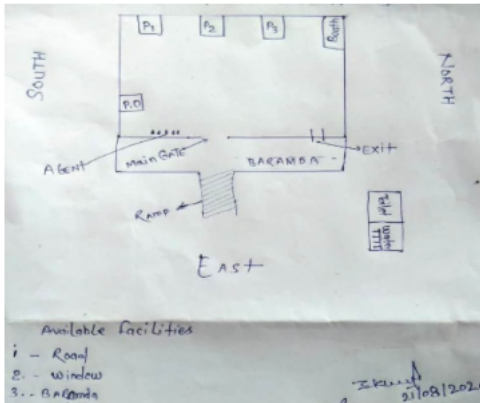 P1
P2
P3
Booth
SOUTH
NORTH
P.O
AGENT
Main GATE
BARAMDA
EXIT
RAMP
Toilet
Water
EAST
Available facilities
1 - Road
2. - window
3. - BARAMDA
21/08/202